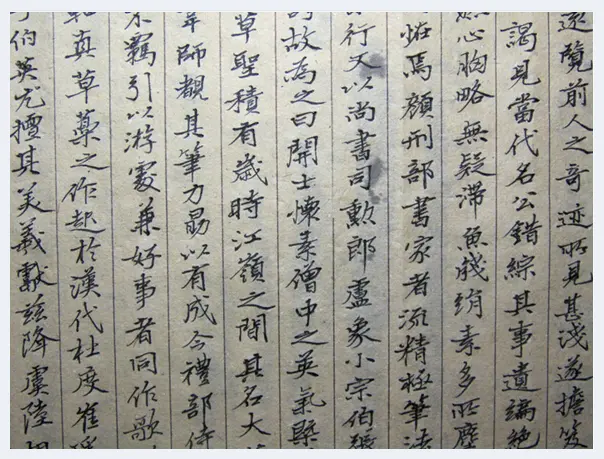 遠覽前人之奇迹所見甚淺遂擔笈
謁見當代名公錯綜其事遺編絶
然心胸略無疑滯魚牋絹素多所塵
恠焉顏刑部書家者流精極筆法
行又以尚書司勲郎盧象小宗伯張
故為之曰開士懷素僧中之英氣槩
草聖積有歲時江嶺之間其名大
師覩其筆力勗以有成今禮部侍
不羈引以游處兼好事者同作歌
真草藁之作起於漢代杜度崔瑗
伯英尤擅其美羲獻茲降虞陸